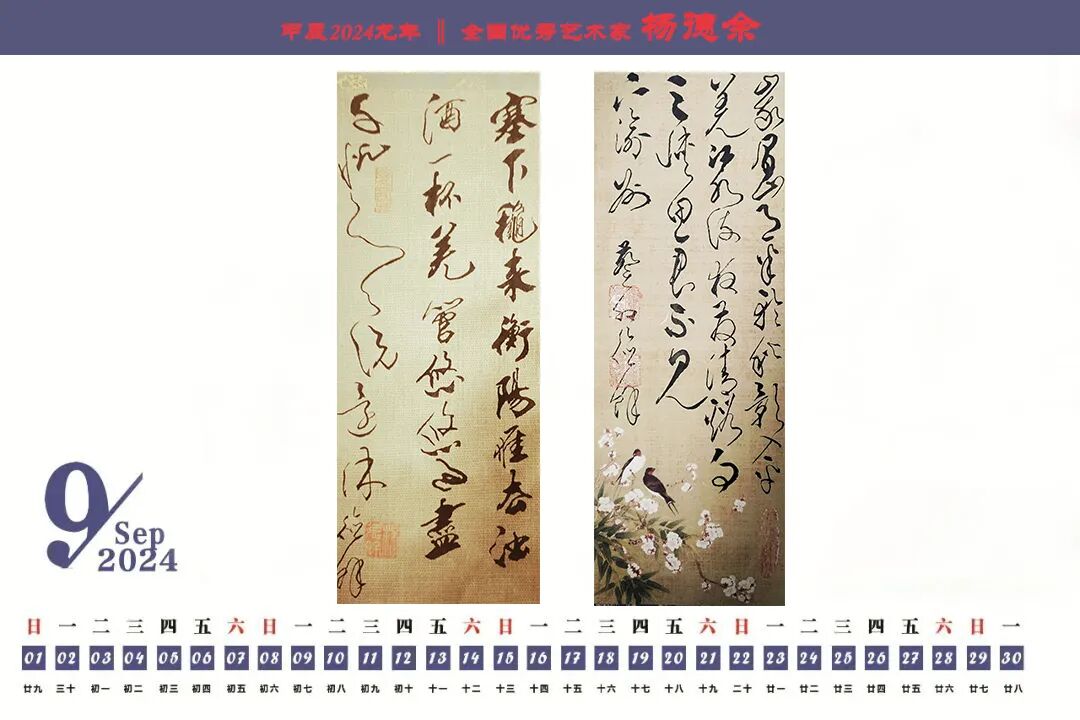 甲辰2024龙年 ‖ 全国优秀艺术家 杨德余
塞下龝来衡陽雁去浊
酒一杯羌管悠悠盡
峩眉山月半轮秋影入平
羌江水流夜发清谿向
三峡思君不见
下渝州
9
Sep
2024
日 一 二 三 四 五 六 日 一 二 三 四 五 六 日 一 二 三 四 五 六 日 一 二 三 四 五 六 日 一
01 02 03 04 05 06 07 08 09 10 11 12 13 14 15 16 17 18 19 20 21 22 23 24 25 26 27 28 29 30
廿九 三十 初一 初二 初三 初四 初五 初六 初七 初八 初九 初十 十一 十二 十三 十四 十五 十六 十七 十八 十九 二十 廿一 廿二 廿三 廿四 廿五 廿六 廿七 廿八